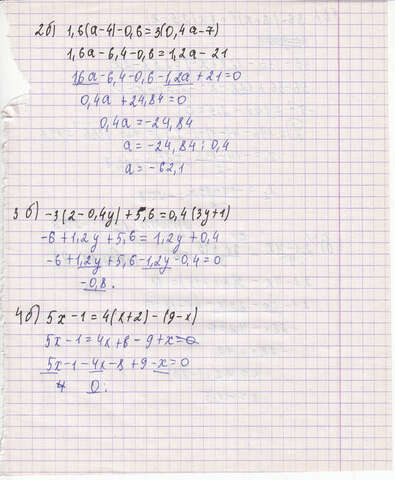 2б) 1,6(a-4)-0,6=3(0,4a-7)
1,6a-6,4-0,6=1,2a-21
16a-6,4-0,6-1,2a+21=0
0,4a+24,84=0
0,4a=-24,84
a=-24,84:0,4
a=-62,1
3б) -3(2-0,4y)+5,6=0,4(3y+1)
-6+1,2y+5,6=1,2y+0,4
-6+1,2y+5,6-1,2y-0,4=0
-0,8.
4б) 5x-1=4(x+2)-(9-x)
5x-1=4x+8-9+x=0
5x-1-4x-8+9-x=0
0.